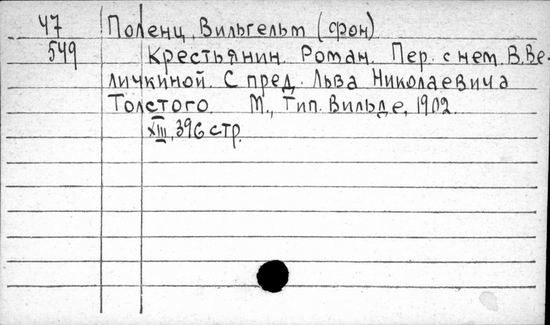 47 Поленц, Вильгельм (фон)
549 Крестьянин. Роман. Пер. с нем. В. Ве-
личкиной. С пред. Льва Николаевича
Толстого. М., Тип. Вильде, 1902.
XIII, 396 стр.